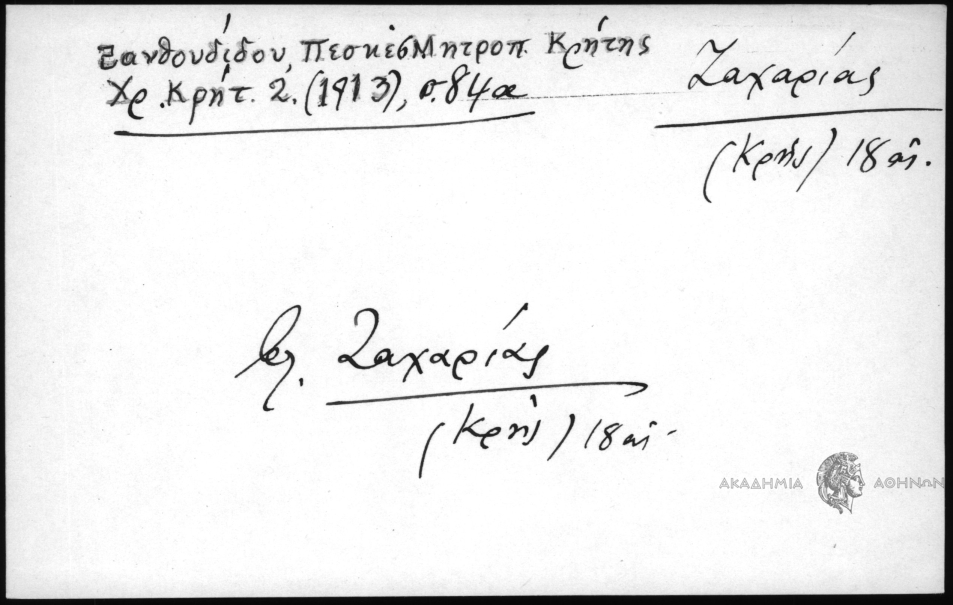 Ξανθουδίδου, Πεσκέσ Μητροπ. Κρήτης
Χρ. Κρήτ. 2. (1913), σ. 84α
Ζαχαρίας
(Κρής) 18 αἰ.
βλ. Ζαχαρίας
(Κρής) 18 αἰ.
ΑΚΑΔΗΜΙΑ ΑΘΗΝΩΝ